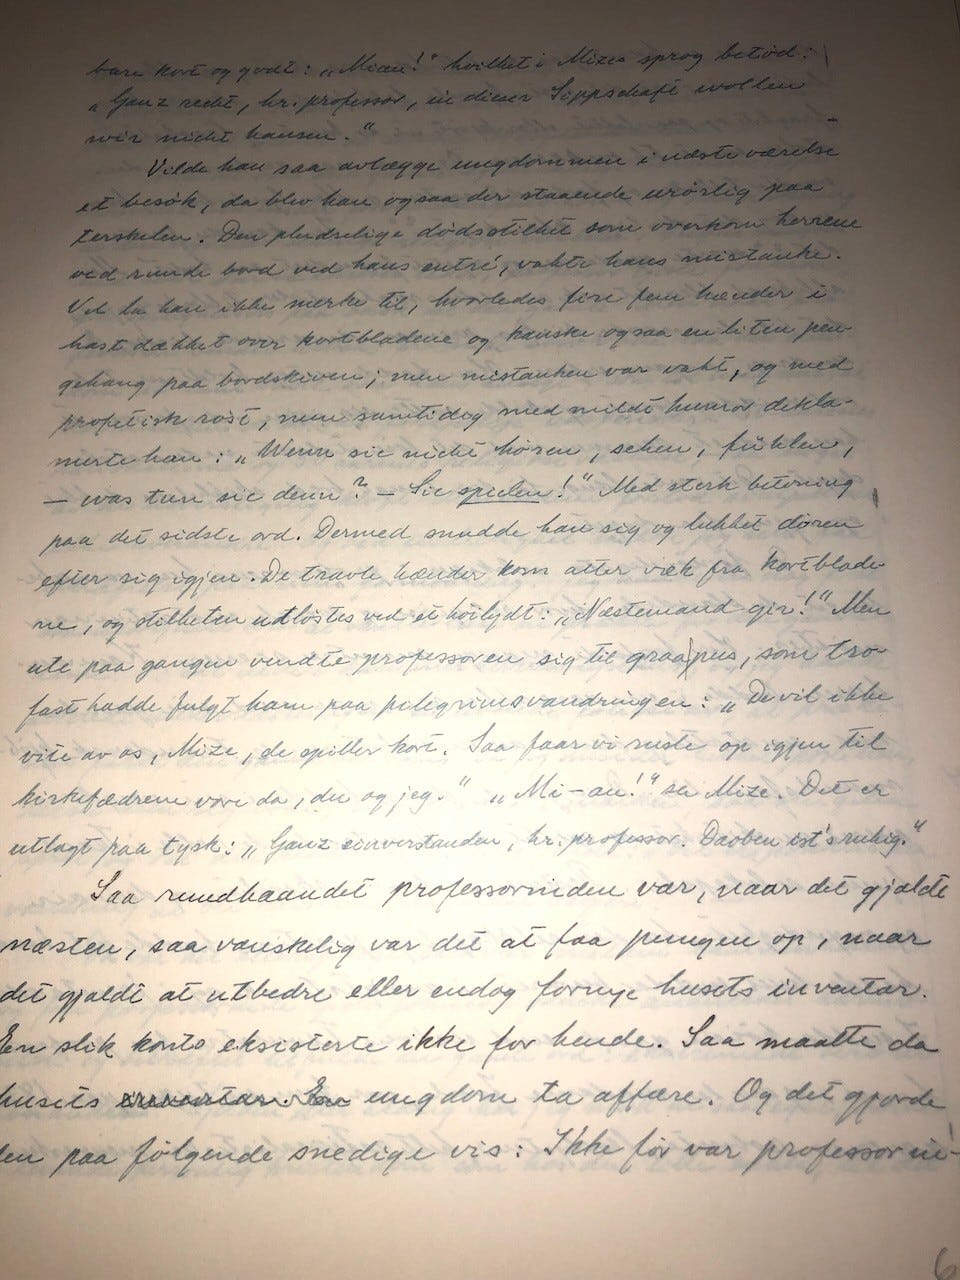 bare kort og godt: „Miau!“ hvilket i Mizes sprog betød:
„Ganz recht, hr. professor, in dieser Sippschaft wollen
wir nicht hausen.“
Vilde han saa avlægge ungdommen i næste værelse
et besøk, da blev han ogsaa der staaende urørlig paa
terskelen. Den pludselige dødsstilhet som overkom herrene
ved runde bord ved hans entré, vakte hans mistanke.
Vel la han ikke merke til, hvorledes fire fem hænder i
hast dækket over kortbladene og kanske ogsaa en liten pen-
gehaug paa bordskiven; men mistanken var vakt, og med
profetisk røst, men samtidog med mildt humør dekla-
merte han: „Wenn sie nicht hören, sehen, fühlen,
– was tun sie denn? – Sie spielen!“ Med sterk betoning
paa det sidste ord. Dermed snudde han sig og lukket døren
efter sig igjen. De travle hænder kom atter væk fra kortblade-
ne, og stilheten utløstes ved et høilydt: „Næstemand gir!“ Men
ute paa gangen vendte professoren sig til graapus, som tro-
fast hadde fulgt ham paa pilegrimsvandringen: „De vil ikke
vite av os, Mize, de spiller kort. Saa faar vi rusle op igjen til
kirkefædrene vore da, du og jeg.“ „Mi–au!“ sa Mize. Det er
utlagt paa tysk: „Ganz einverstanden, hr. professor. Daoben ist's ruhig.“
Saa rundhaandet professorinden var, naar det gjaldt
næsten, saa vanskelig var det at faa pungen op, naar
det gjaldt at utbedre eller endog fornye husets inventar.
En slik konto eksisterte ikke for hende. Saa maatte da
husets inventar. En ungdom ta affære. Og det gjorde
den paa følgende snedige vis: Ikke før var professorin-
6